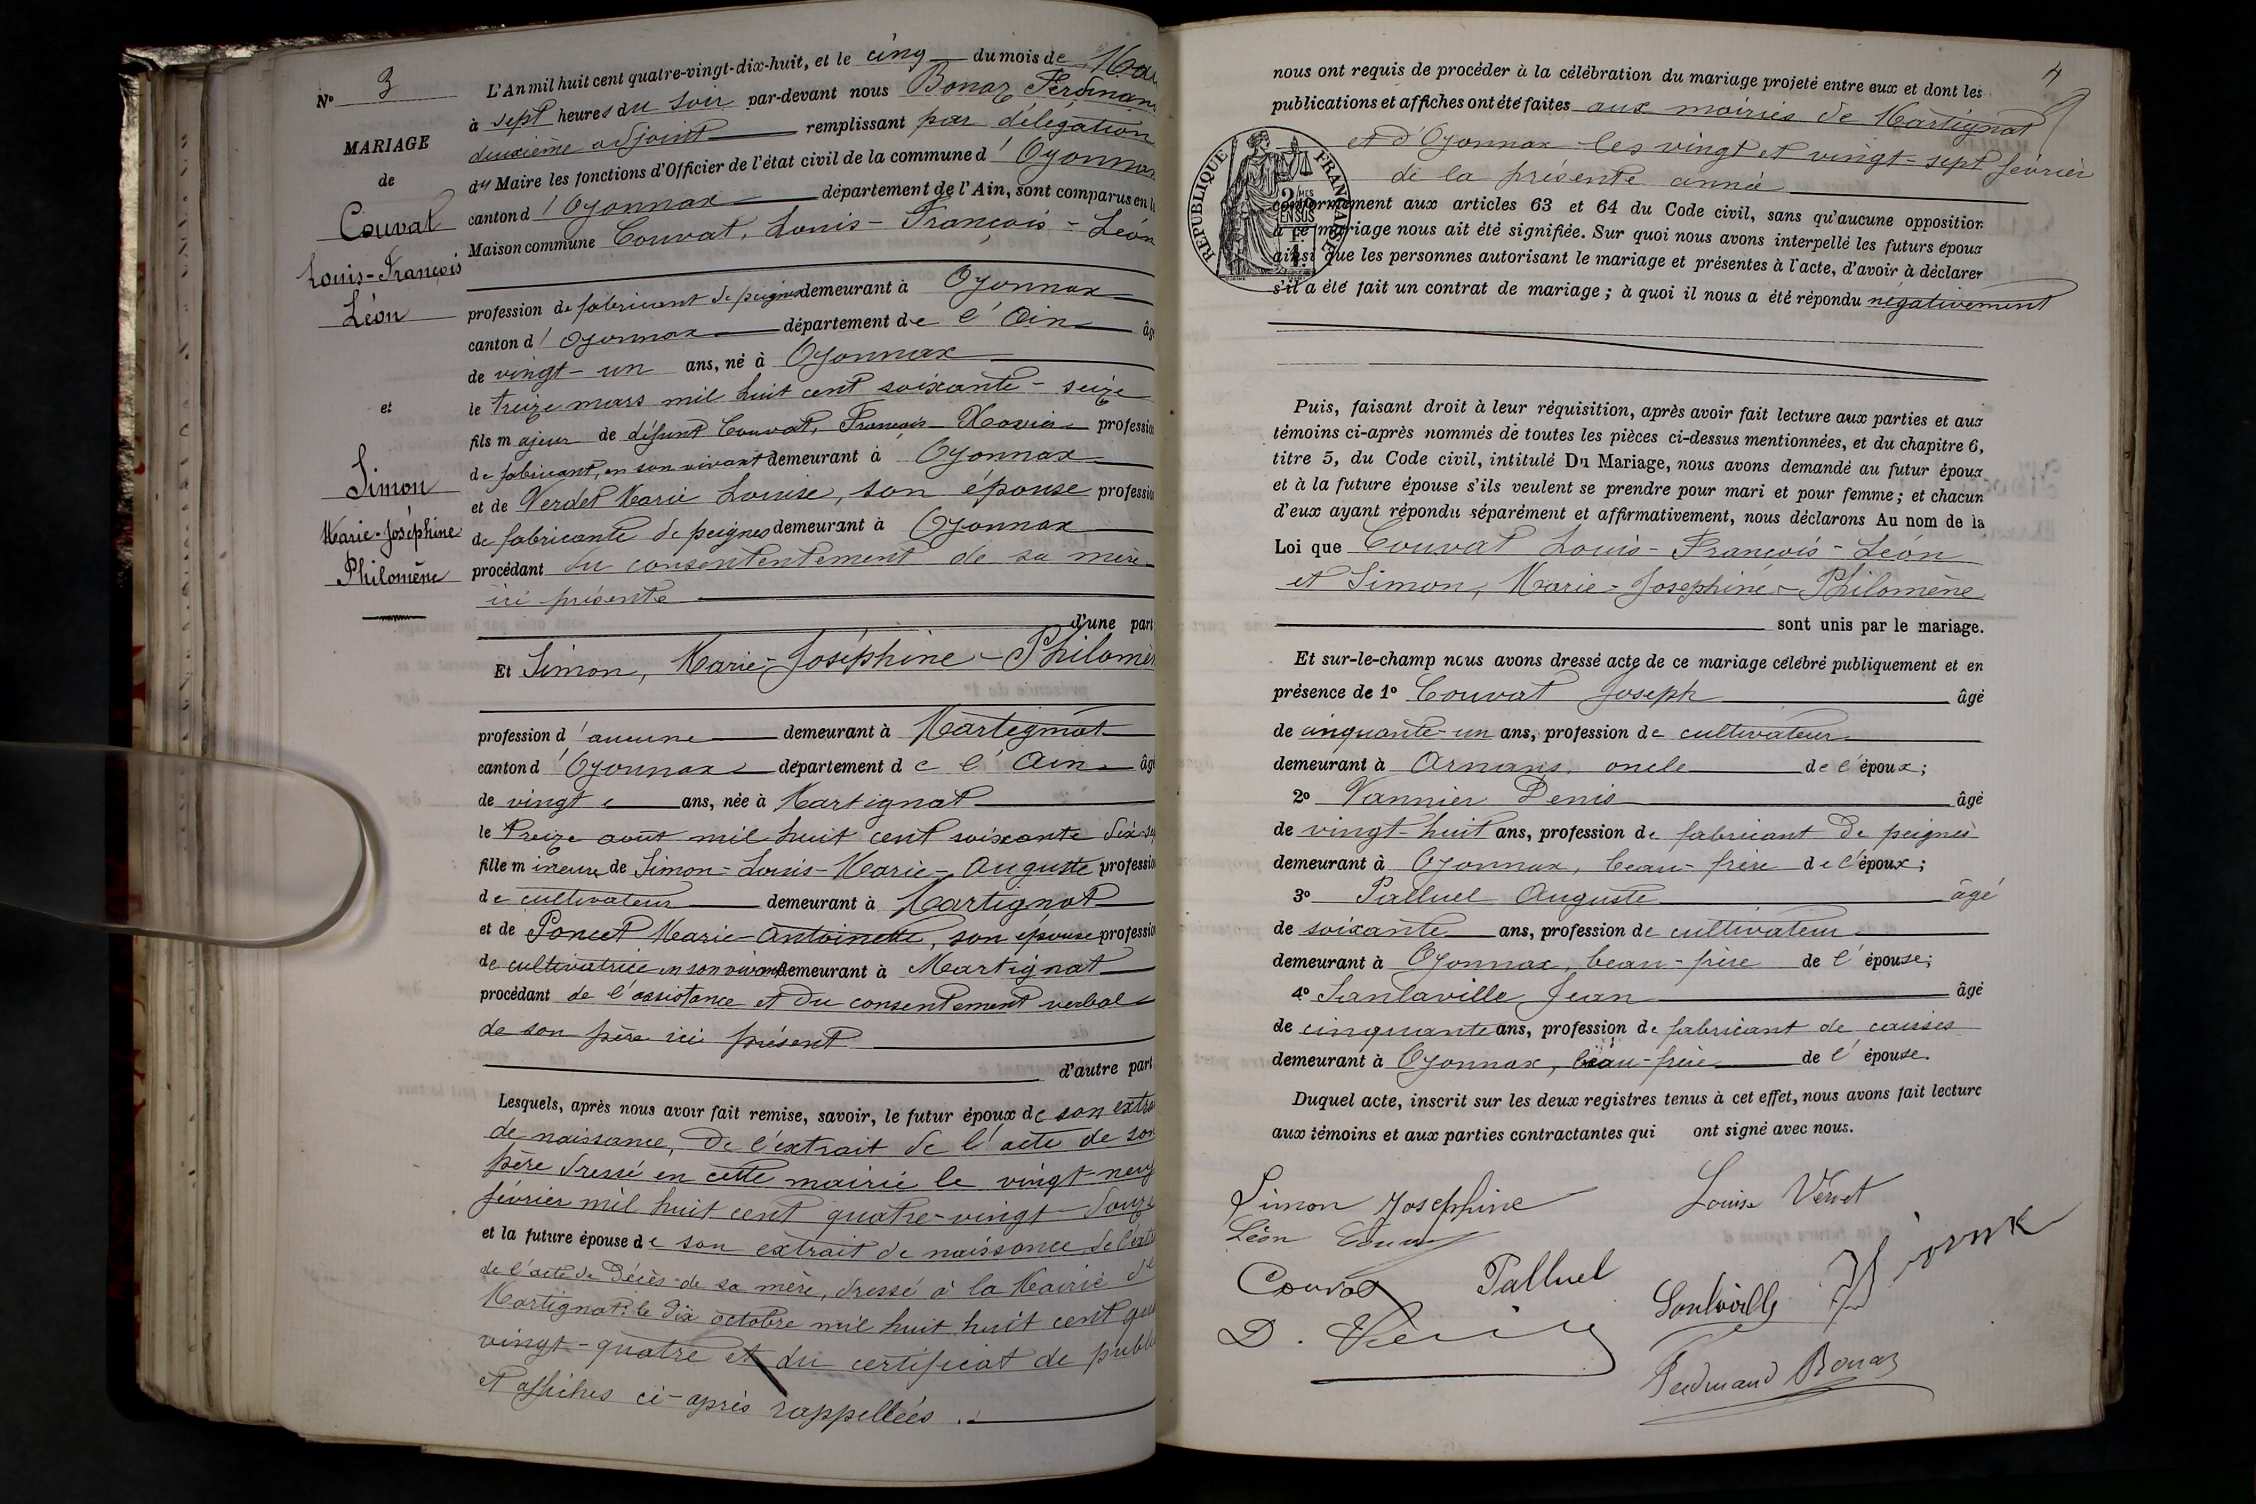 N° 3
MARIAGE
de
Couvat
Louis-François
Léon
et
Simon
Marie-Joséphine
Philomène
L'An mil huit cent quatre-vingt-dix-huit, et le cinq du mois de Mar
à sept heures du soir par-devant nous Bonaz Ferdinan
deuxième adjoint remplissant par délégation
du Maire les fonctions d'Officier de l'état civil de la commune d'Oyonnax
canton d'Oyonnax département de l'Ain, sont comparus en la
Maison commune Couvat, Louis-François-Léon
profession de fabricant de peignes demeurant à Oyonnax
canton d'Oyonnax département de l'Ain âgé
de vingt-un ans, né à Oyonnax
le treize mars mil huit cent soixante-seize
fils majeur de défunt Couvat, François-Xavier profession
de fabricant, en son vivant demeurant à Oyonnax
et de Verdet Marie Louise, son épouse profession
de fabricante de peignes demeurant à Oyonnax
procédant du consententement de sa mère
ici présente
d'une part
Et Simon, Marie-Joséphine-Philomèn
profession d'aucune demeurant à Martignat
canton d'Oyonnax département de l'Ain âgé
de vingt ans, née à Martignat
le treize août mil huit cent soixante dix-se
fille mineure de Simon-Louis-Marie-Auguste profession
de cultivateur demeurant à Martignat
et de Poncet Marie-Antoinette, son épouse profession
de cultivatrice en son vivant demeurant à Martignat
procédant de l'assistance et du consentement verbal
de son père ici présent
d'autre part
Lesquels, après nous avoir fait remise, savoir, le futur époux de son extra
de naissance, de l'extrait de l'acte de son
père dressé en cette mairie le vingt-neuf
février mil huit cent quatre-vingt-douze
et la future épouse de son extrait de naissance, de l'extr
de l'acte de décès de sa mère, dressé à la Mairie de
Martignat le dix octobre mil huit huit cent qua
vingt-quatre et du certificat de publi
et affiches ci-après rappellées.
4
nous ont requis de procéder à la célébration du mariage projeté entre eux et dont les
publications et affiches ont été faites aux mairies de Martignat
et d'Oyonnax les vingt et vingt-sept février
de la présente année
RÉPUBLIQUE FRANÇAISE
2/10MES EN SUS
conformément aux articles 63 et 64 du Code civil, sans qu'aucune opposition
à ce mariage nous ait été signifiée. Sur quoi nous avons interpellé les futurs époux
ainsi que les personnes autorisant le mariage et présentes à l'acte, d'avoir à déclarer
s'il a été fait un contrat de mariage; à quoi il nous a été répondu négativement
Puis, faisant droit à leur réquisition, après avoir fait lecture aux parties et aux
témoins ci-après nommés de toutes les pièces ci-dessus mentionnées, et du chapitre 6,
titre 5, du Code civil, intitulé Du Mariage, nous avons demandé au futur époux
et à la future épouse s'ils veulent se prendre pour mari et pour femme; et chacun
d'eux ayant répondu séparément et affirmativement, nous déclarons Au nom de la
Loi que Couvat Louis-François-Léon
et Simon, Marie-Josephine-Philomène
sont unis par le mariage.
Et sur-le-champ nous avons dressé acte de ce mariage célébré publiquement et en
présence de 1° Couvat Joseph âgé
de cinquante-un ans, profession de cultivateur
demeurant à Arnans, oncle de l'époux;
2° Vannier Denis âgé
de vingt-huit ans, profession de fabricant de peignes
demeurant à Oyonnax, beau-frère de l'époux;
3° Palluel Auguste âgé
de soixante ans, profession de cultivateur
demeurant à Oyonnax, beau-frère de l'épouse;
4° Sanlaville Jean âgé
de cinquante ans, profession de fabricant de caisses
demeurant à Oyonnax, beau-frère de l'épouse.
Duquel acte, inscrit sur les deux registres tenus à cet effet, nous avons fait lecture
aux témoins et aux parties contractantes qui ont signé avec nous.
Simon Josephine Louise Verdet
Léon Couvat
Couvat Palluel Sanlaville
D. Va
Ferdinand Bonaz